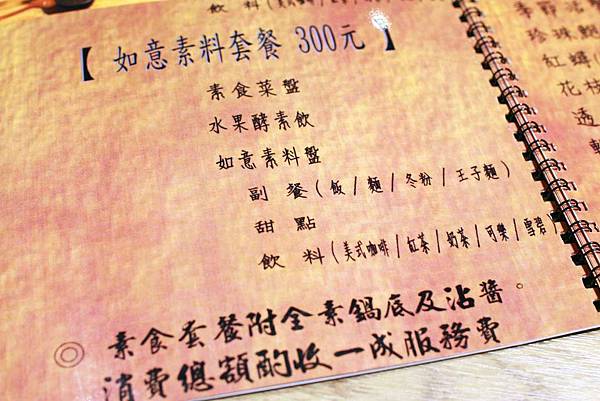 飲 料
【 如意素料套餐 300元 】
素食菜盤
水果酵素飲
如意素料盤
副 餐(飯/麵/冬粉/王子麵)
甜 點
飲 料(美式咖啡/紅茶/奶茶/可樂/雪碧/
◎ 素食套餐附全素鍋底及沾醬。
消費總額酌收一成服務費
季節
珍珠
紅蟳
花枝
透